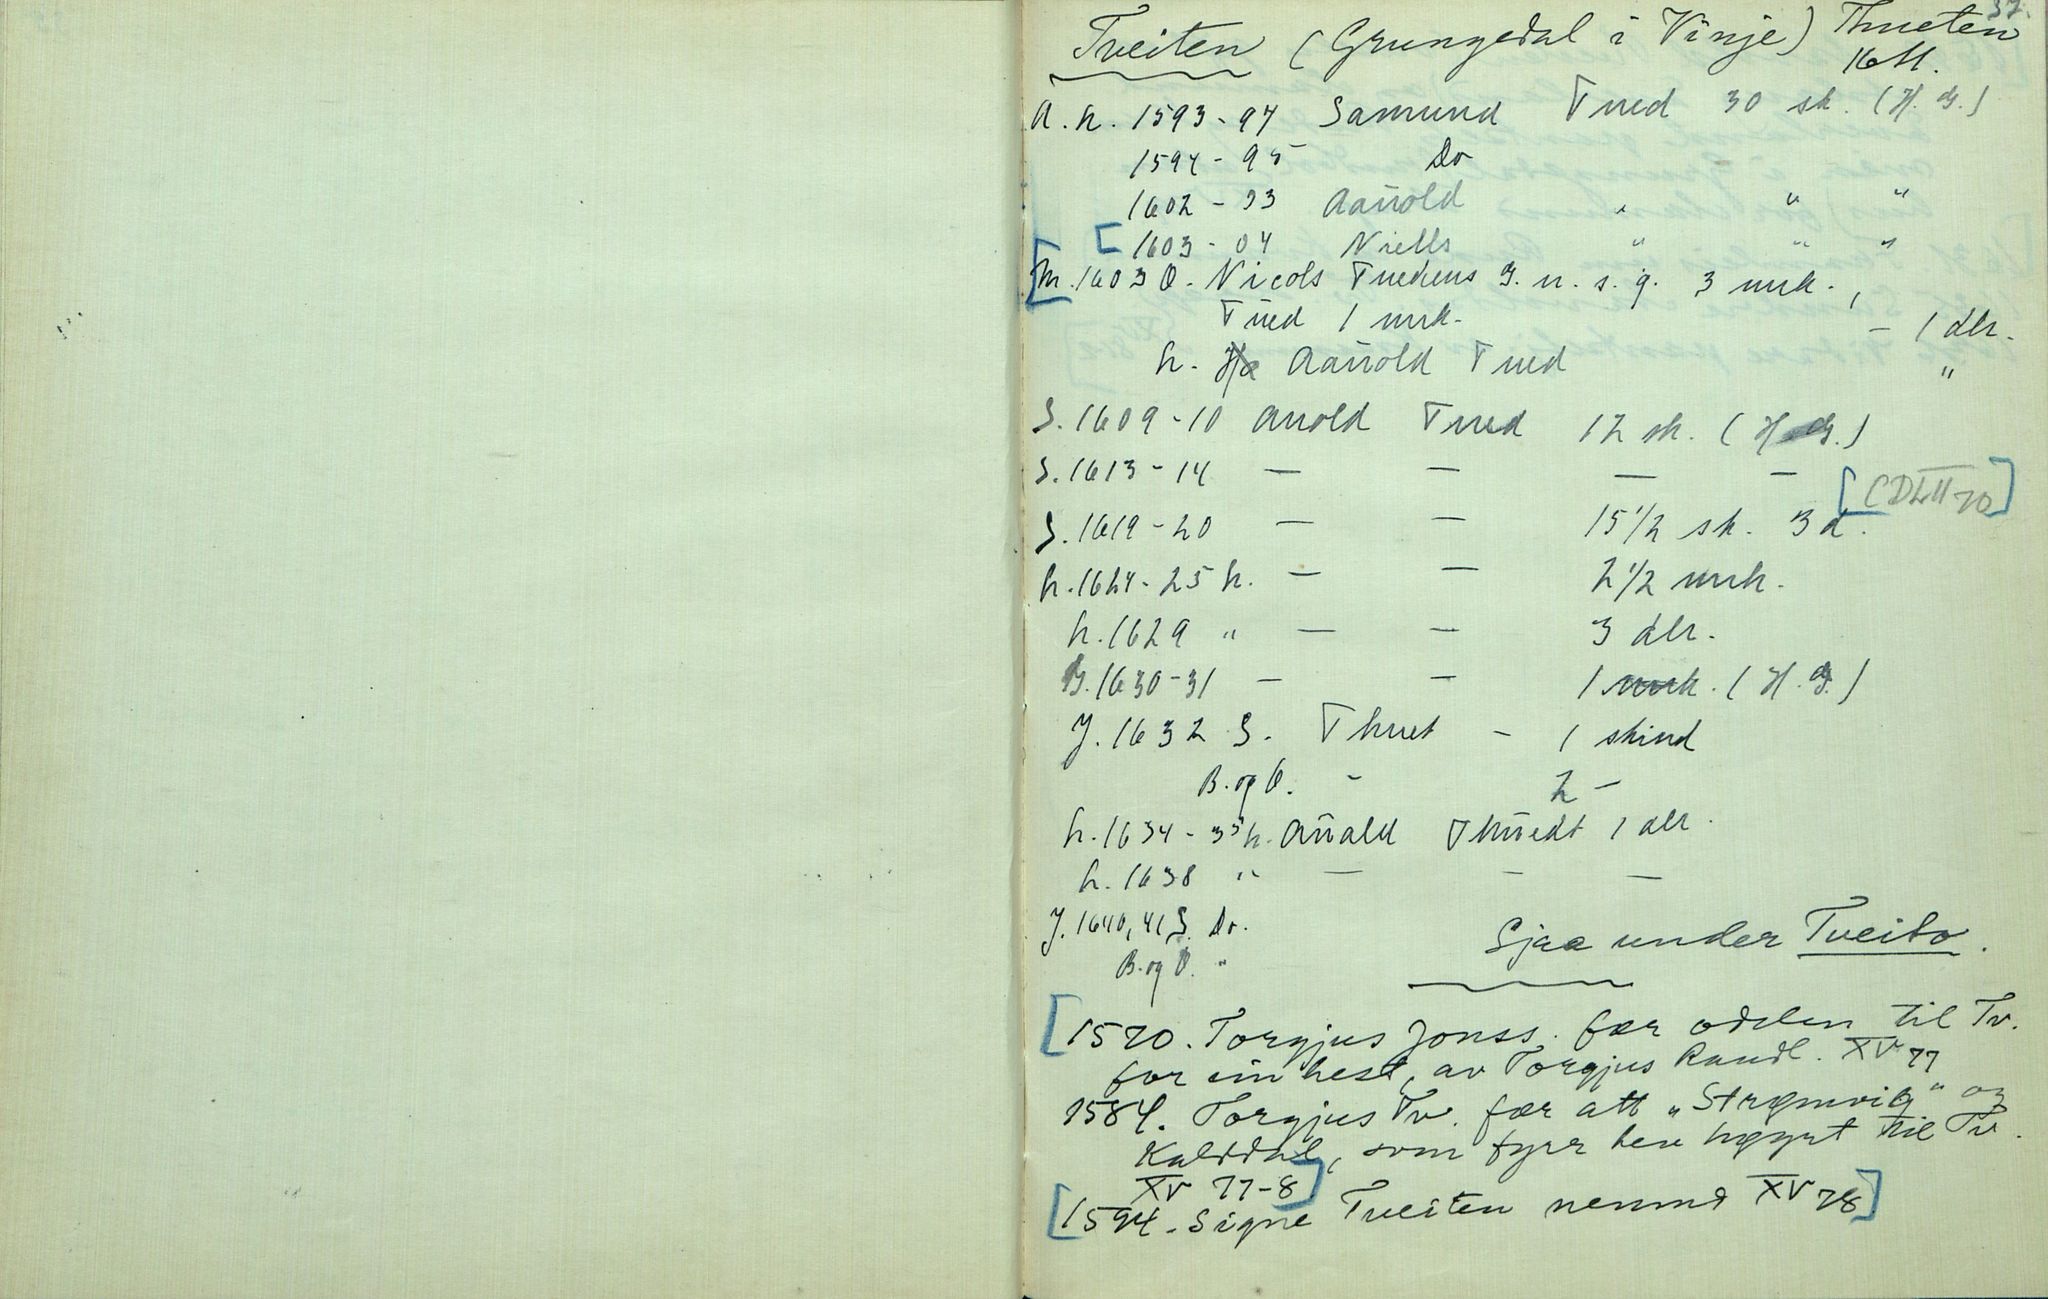 37.
Tveiten (Grungedal i Vinje) Thueten
16 M.
A. h. 1593-94 Samund Tued 30 sk. (H. G.)
1594-95 Do
1602-03 Aauold " " "
[1603-04 Niells " " "
[M. 1603 O. Nicols Tuedens G. n. s. g. 3 mrk.,
Tued 1 mrk. - 1 dlr.
h. Aauold Tued "
S. 1609-10 Auold Tued 12 sk. (H. G.)
S. 1613-14 — — — —
[CDLII 70]
S. 1619-20 — — 15 1/2 sk. 3 d.
h. 1624-25 h. — — 2 1/2 mrk.
h. 1629 " — — 3 dlr.
G. 1630-31 — — 1 mrk. (H. G.)
J. 1632 S. Thuet - 1 skind
B. og O. - 2 -
h. 1634-35 h. Auald Thuedt 1 dlr.
h. 1638 " — — —
J. 1640, 41 S. Do.
B. og O. "
Sjaa under Tveito.
[1570. Torgjus Jonss. fær odelen til Tv.
for ein hest, av Torgjus Raudl. XV 77
1584. Torgjus Tv. fær att „Strømvig" og
Kalddal, som fyrr hev høyrt til Tv.
XV 77-8]
[1594. Signe Tveiten nemnd XV 78]